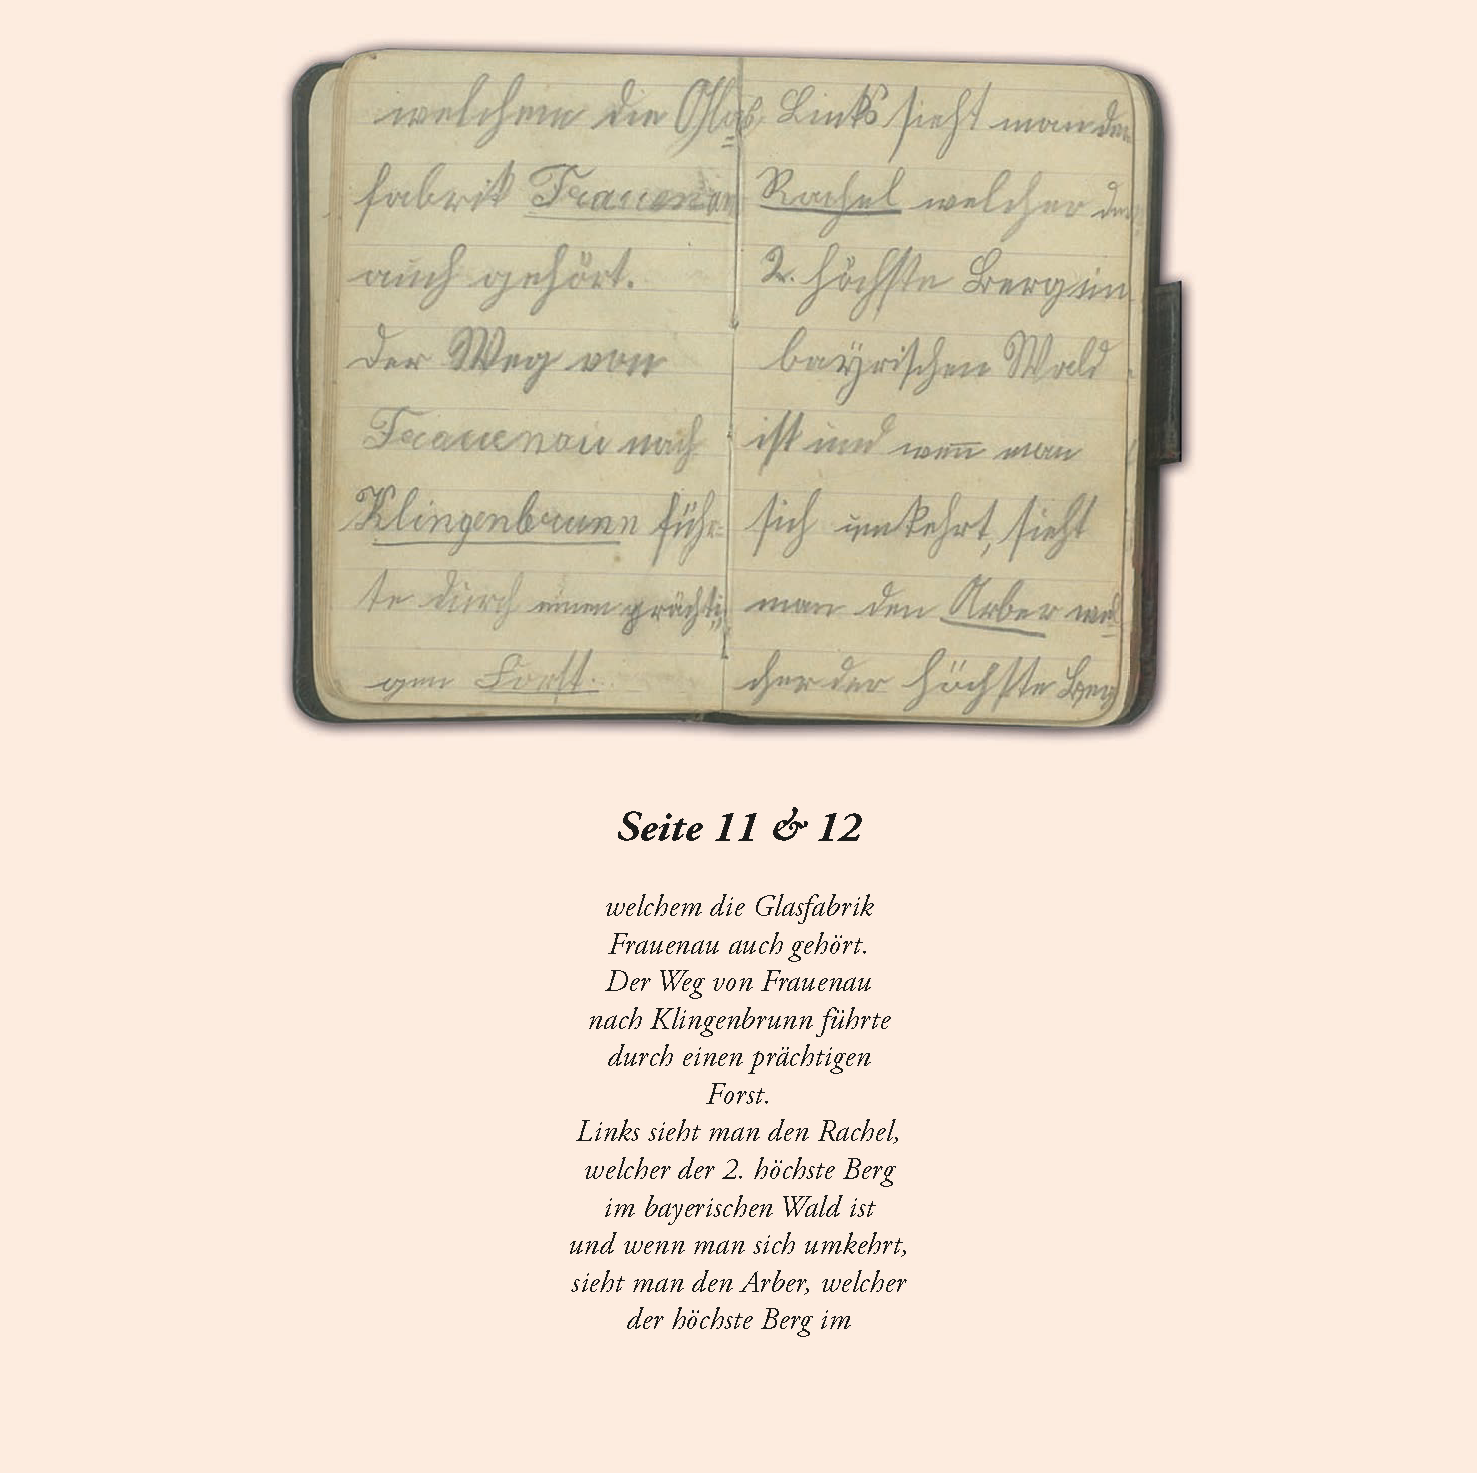 welchem die Glas=
fabrik Frauenau
auch gehört.
der Weg von
Frauenau nach
Klingenbrunn führ=
te durch einen prächti=
gen Forst.
Links sieht man den
Rachel welcher der
2. höchste Berg im
bayrischen Wald
ist und wen̅ man
sich umkehrt, sieht
man den Arber wel=
cher der höchste Berg
Seite 11 & 12
welchem die Glasfabrik
Frauenau auch gehört.
Der Weg von Frauenau
nach Klingenbrunn führte
durch einen prächtigen
Forst.
Links sieht man den Rachel,
welcher der 2. höchste Berg
im bayerischen Wald ist
und wenn man sich umkehrt,
sieht man den Arber, welcher
der höchste Berg im